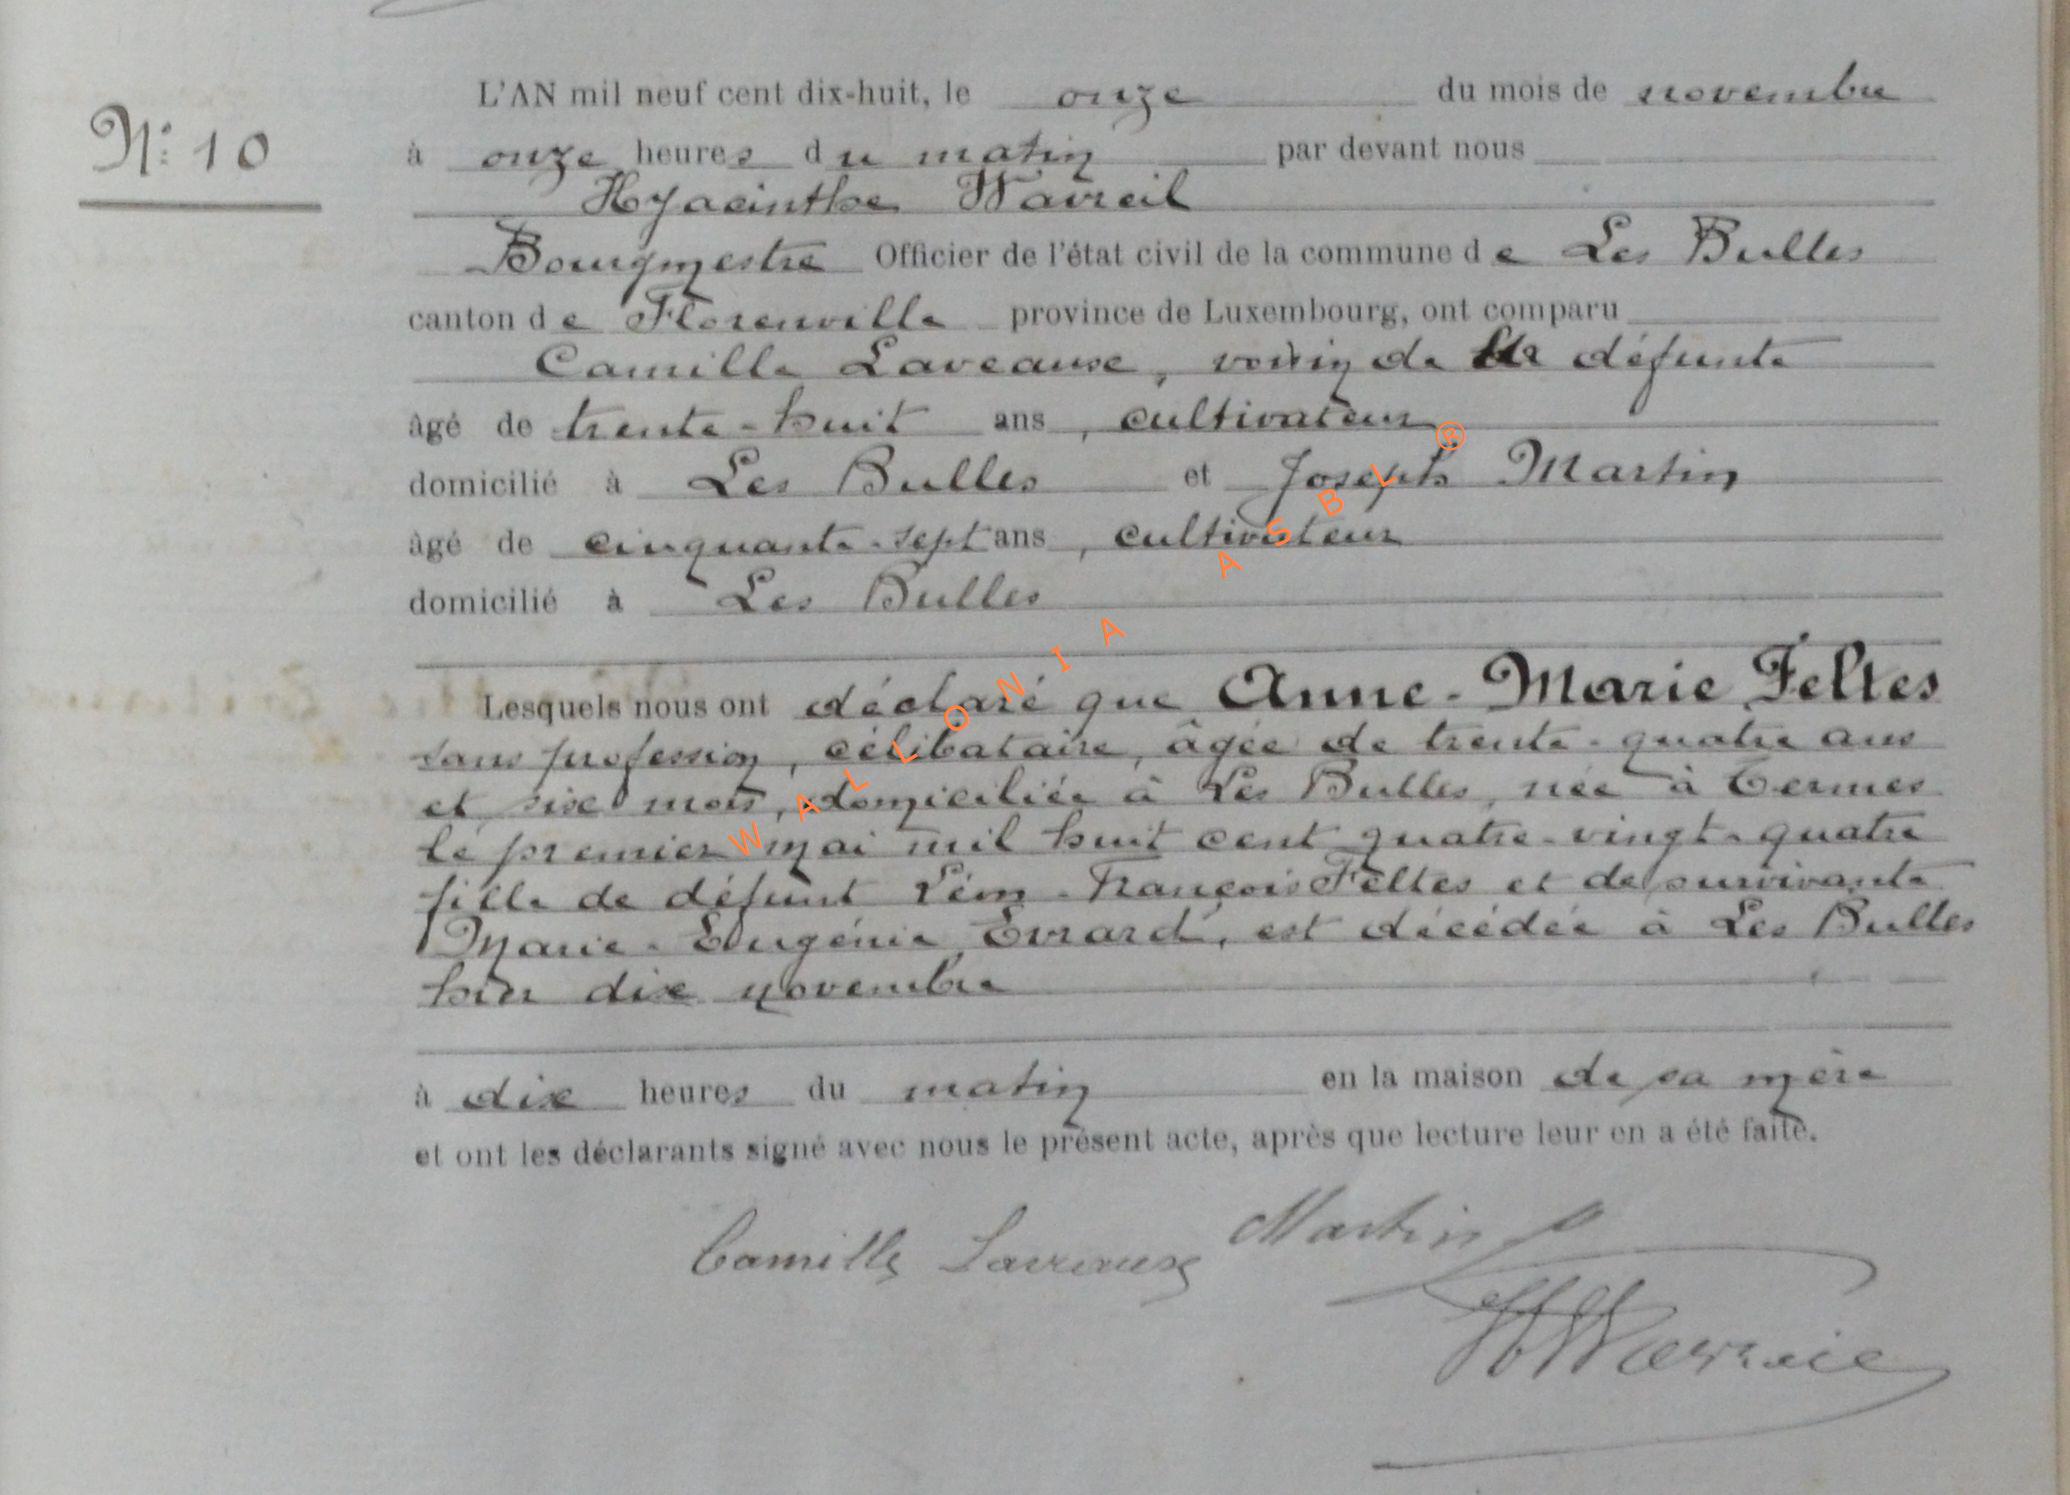 L'AN mil neuf cent dix-huit, le onze du mois de novembre
N° 10
à onze heures du matin par devant nous
Hyacinthe Wavreil
Bourgmestre Officier de l'état civil de la commune de Les Bulles
canton de Florenville province de Luxembourg, ont comparu
Camille Laveaux, voisin de la défunte
âgé de trente-huit ans, cultivateur
domicilié à Les Bulles et Joseph Martin
âgé de cinquante-sept ans, cultivateur
domicilié à Les Bulles
Lesquels nous ont déclaré que Anne-Marie Feltes
sans profession, célibataire, âgée de trente-quatre ans
et six mois, domiciliée à Les Bulles, née à Termes
le premier mai mil huit cent quatre-vingt-quatre
fille de défunt - François Feltes et de survivante
Marie-Eugénie Evrard, est décédée à Les Bulles
hier dix novembre
à dix heures du matin en la maison de sa mère
et ont les déclarants signé avec nous le présent acte, après que lecture leur en a été faite.
Camille Laveaux Martin J
WALLONIA ASBL ®